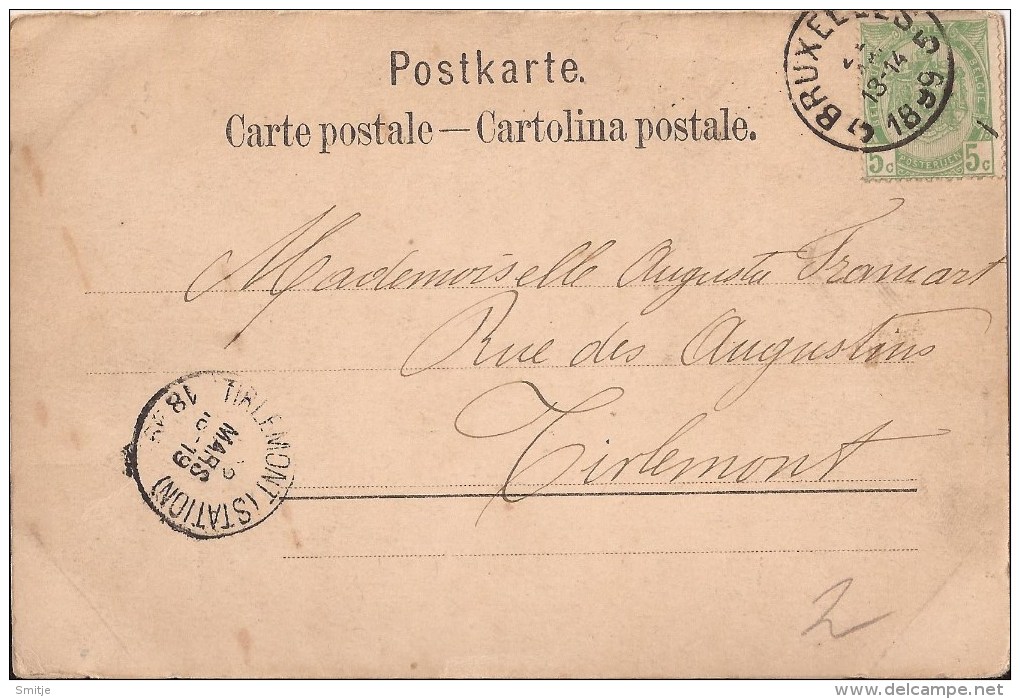 Postkarte.
Carte postale — Cartolina postale.
BRUXELLES 5
13-14
1899
BELGIE
5c POSTERIJEN 5c
Mademoiselle Augusta Framart
Rue des Augustins
Tirlemont
TIRLEMONT (STATION)
MARS
18
2
Smitje
www.delcampe.net